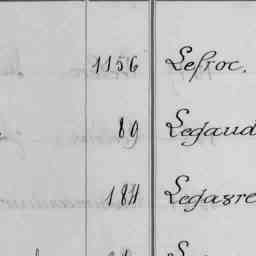 1156 Lefroc.
89 Legaud
184 Legasre